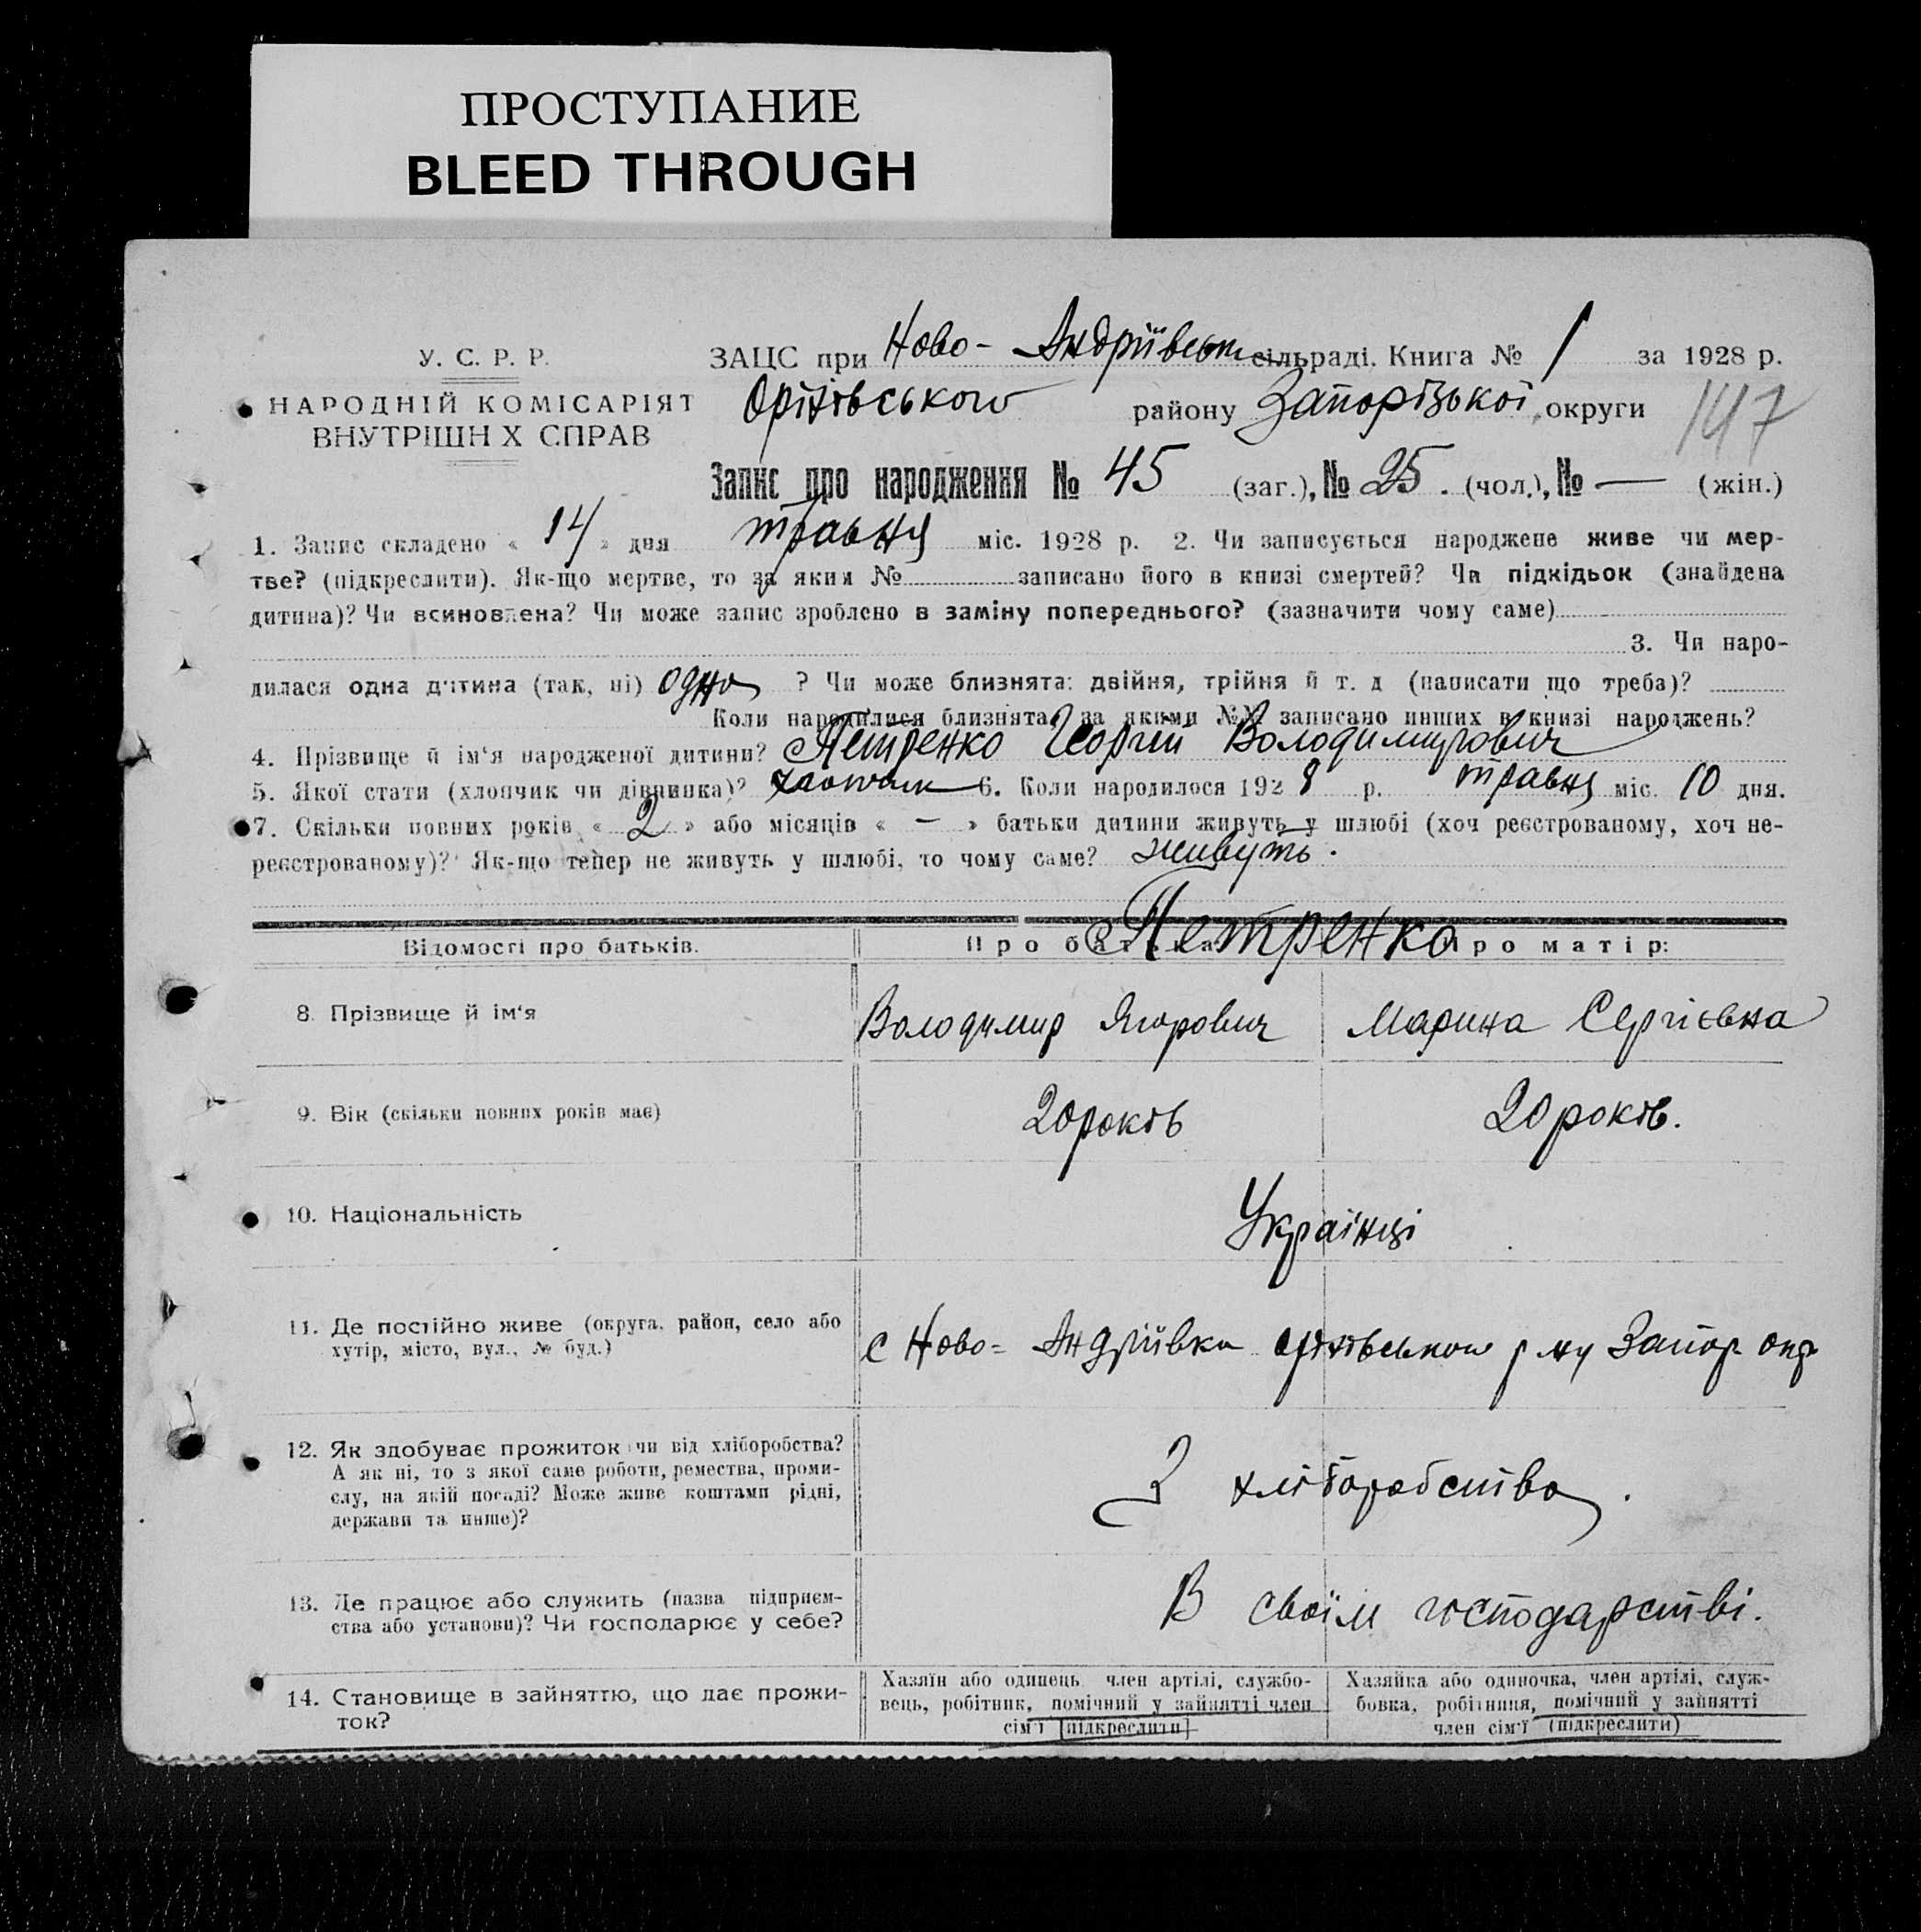 ПРОСТУПАНИЕ
BLEED THROUGH
У. С. Р. Р.
НАРОДНІЙ КОМІСАРІЯТ
ВНУТРІШН Х СПРАВ
ЗАЦС при Ново- Андріївськ сільраді. Книга № 1 за 1928 р.
Оріхівського району Запорізької округи
147
Запис про народження № 45 (заг.), № 25. (чол.), № — (жін.)
1. Запис складено « 14 » дня травня міс. 1928 р. 2. Чи записується народжене живе чи мер-
тве? (підкреслити). Як-що мертве, то за яким № записано його в книзі смертей? Чи підкідьок (знайдена
дитина)? Чи всиновлена? Чи може запис зроблено в заміну попереднього? (зазначити чому саме)
3. Чи наро-
дилася одна дитина (так, ні) одно ? Чи може близнята: двійня, трійня й т. д (написати що треба)?
Коли народилися близнята, за якими №№ записано инших в книзі народжень?
4. Прізвище й ім'я народженої дитини? Петренко Георгій Володимирович
5. Якої стати (хлопчик чи дівчинка)? хлопчик 6. Коли народилося 1928 р. травня міс. 10 дня.
7. Скільки повних років « 2 » або місяців « — » батьки дитини живуть у шлюбі (хоч реєстрованому, хоч не-
реєстрованому)? Як-що тепер не живуть у шлюбі, то чому саме? живуть.
Відомості про батьків. Про батька Про матір:
Петренко
8. Прізвище й ім'я Володимир Ягорович Марина Сергієвна
9. Вік (скільки повних років має) 20 років 20 років.
10. Національність Українці
11. Де постійно живе (округа, район, село або
хутір, місто, вул., № буд.)
с Ново= Андріївка оріхівського р-ну Запор. окр
12. Як здобуває прожиток чи від хліборобства?
А як ні, то з якої саме роботи, ремества, проми-
слу, на якій посаді? Може живе коштами рідні,
держави та инше)?
З хліборобства.
13. Де працює або служить (назва підприєм-
ства або установи)? Чи господарює у себе?
В своїм господарстві.
14. Становище в зайняттю, що дає прожи-
ток?
Хазяїн або одинець, член артілі, службо-
вець, робітник, помічний у зайнятті член
сім'ї (підкреслити)
Хазяйка або одиночка, член артілі, служ-
бовка, робітниця, помічний у зайнятті
член сім'ї (підкреслити)